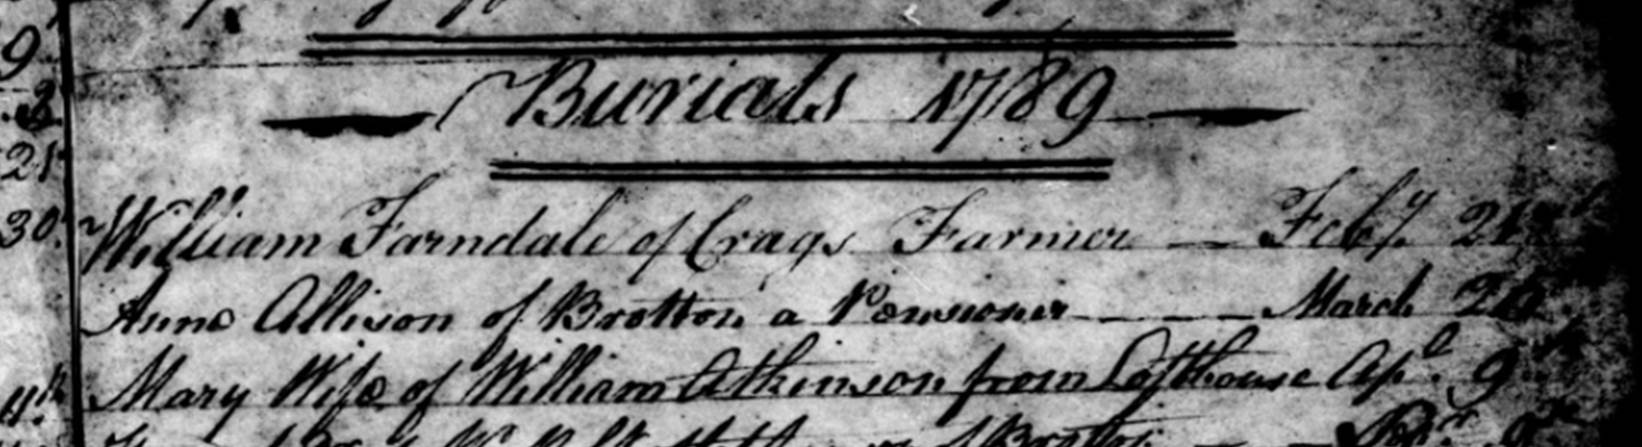 9
2
21
30
Burials 1789
William Farndale of Crags Farmer — Feby. 21st
Anne Allison of Brotton a Pensioner — — — March
11th Mary Wife of William Atkinson from Lofthouse Apl. 9th
of Brotton